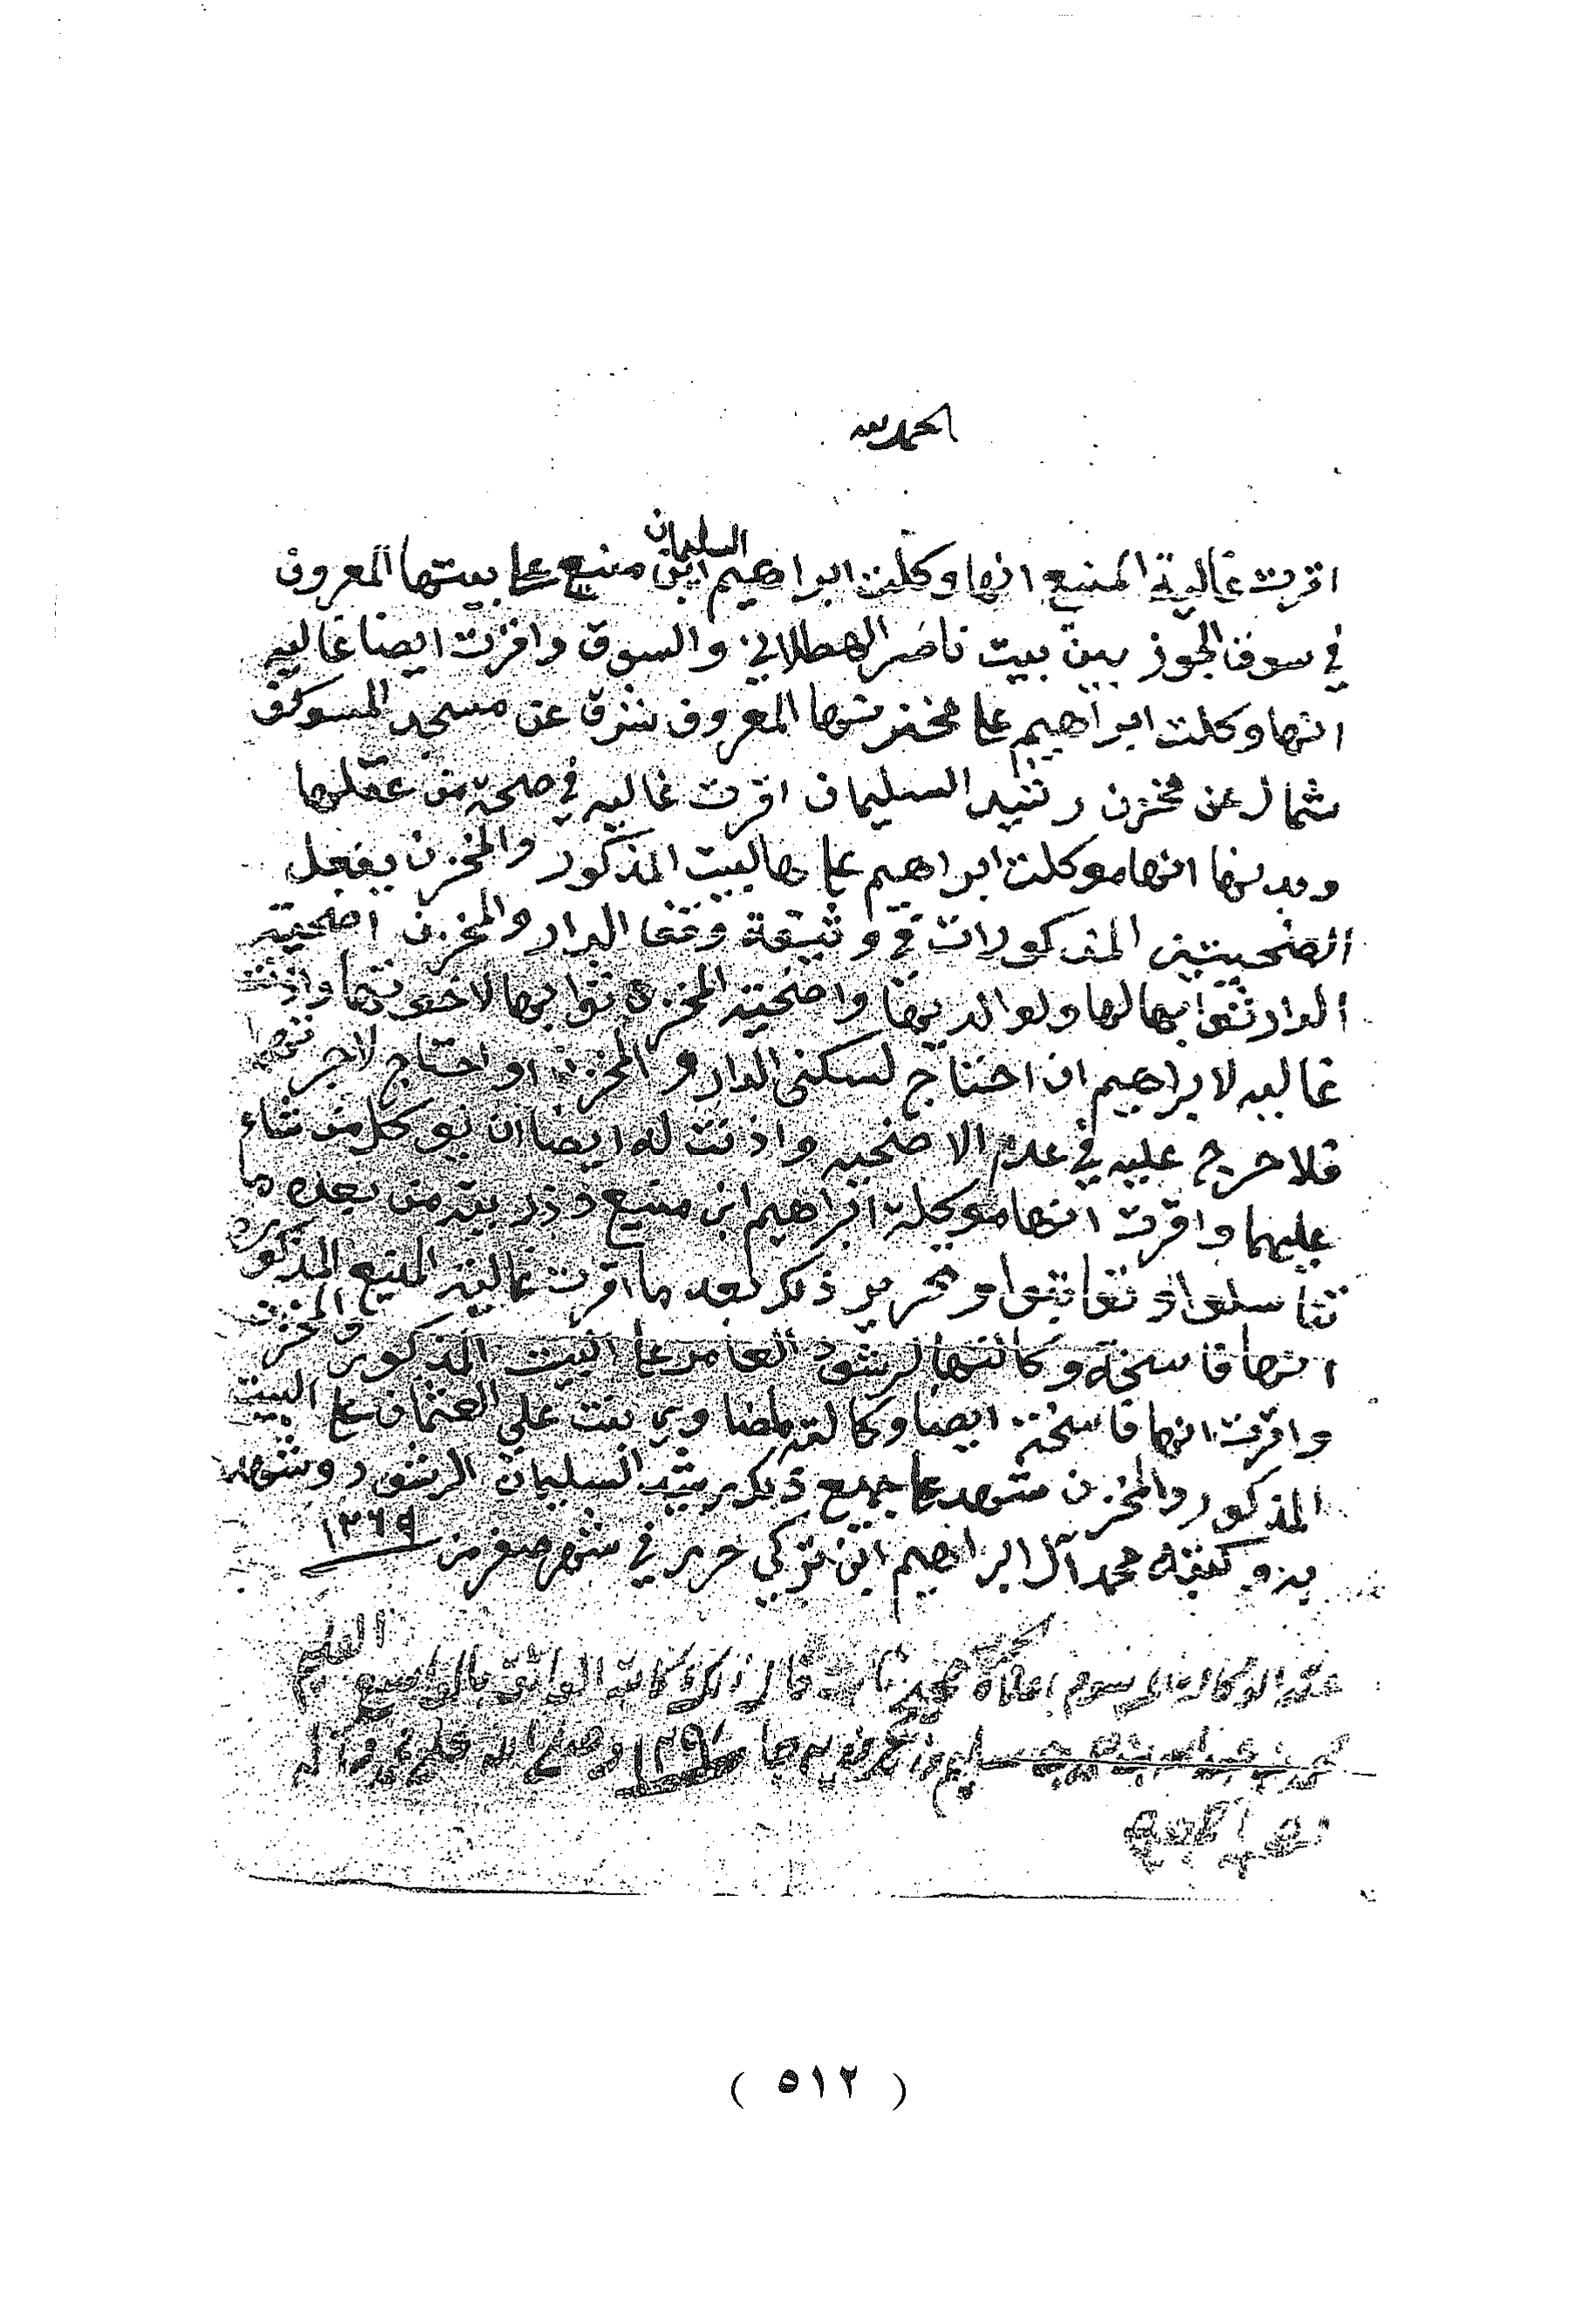 الحمد لله
السليمان
اقرت غالية المنيع انها وكلت ابراهيم ابن منيع على بيتها المعروف
في سوق الجوز بين بيت ناصر الهطلاني والسوق واقرت ايضا غاليه
انها وكلت ابراهيم على مخزنها المعروف شرق عن مسجد المسوكف
شمال عن مخزن رشيد السليمان اقرت غاليه في صحة من عقلها
وبدنها انها موكلت ابراهيم على هالبيت المذكور والمخزن يفعل
الضحيتين المذكورات في وثيقة وقف الدار والمخزن اضحية
الدار ثوابها لها ولوالديها واضحية المخزن ثوابها لاخوتها واذنت
غاليه لابراهيم ان احتاج لسكنى الدار والمخزن او احتاج لاجرتها
فلا حرج عليه في عدم الاضحيه واذنت له ايضا ان يوكل من شاء
عليهما واقرت انها موكلة ابراهيم ابن منيع وذريته من بعده ما
تناسلوا وتعاقبوا وتحرير ذلك بعد ما اقرت غالية المنيع المذكوره
انها فاسخة وكالتها لرشود العامر على البيت المذكور والمخزن
واقرت انها فاسخة ايضا وكالة بنت علي العثمان على البيت
المذكور والمخزن شهد على جميع ذلك رشيد السليمان الرشود وشهد
به وكتبه محمد آل ابراهيم ابن تركي حرر في شهر صفر من ١٣٦٩
قال ذلك كاتبه الواثق بالواسع العليم
محمد بن عبدالله سليم وصلى الله على محمد وآله